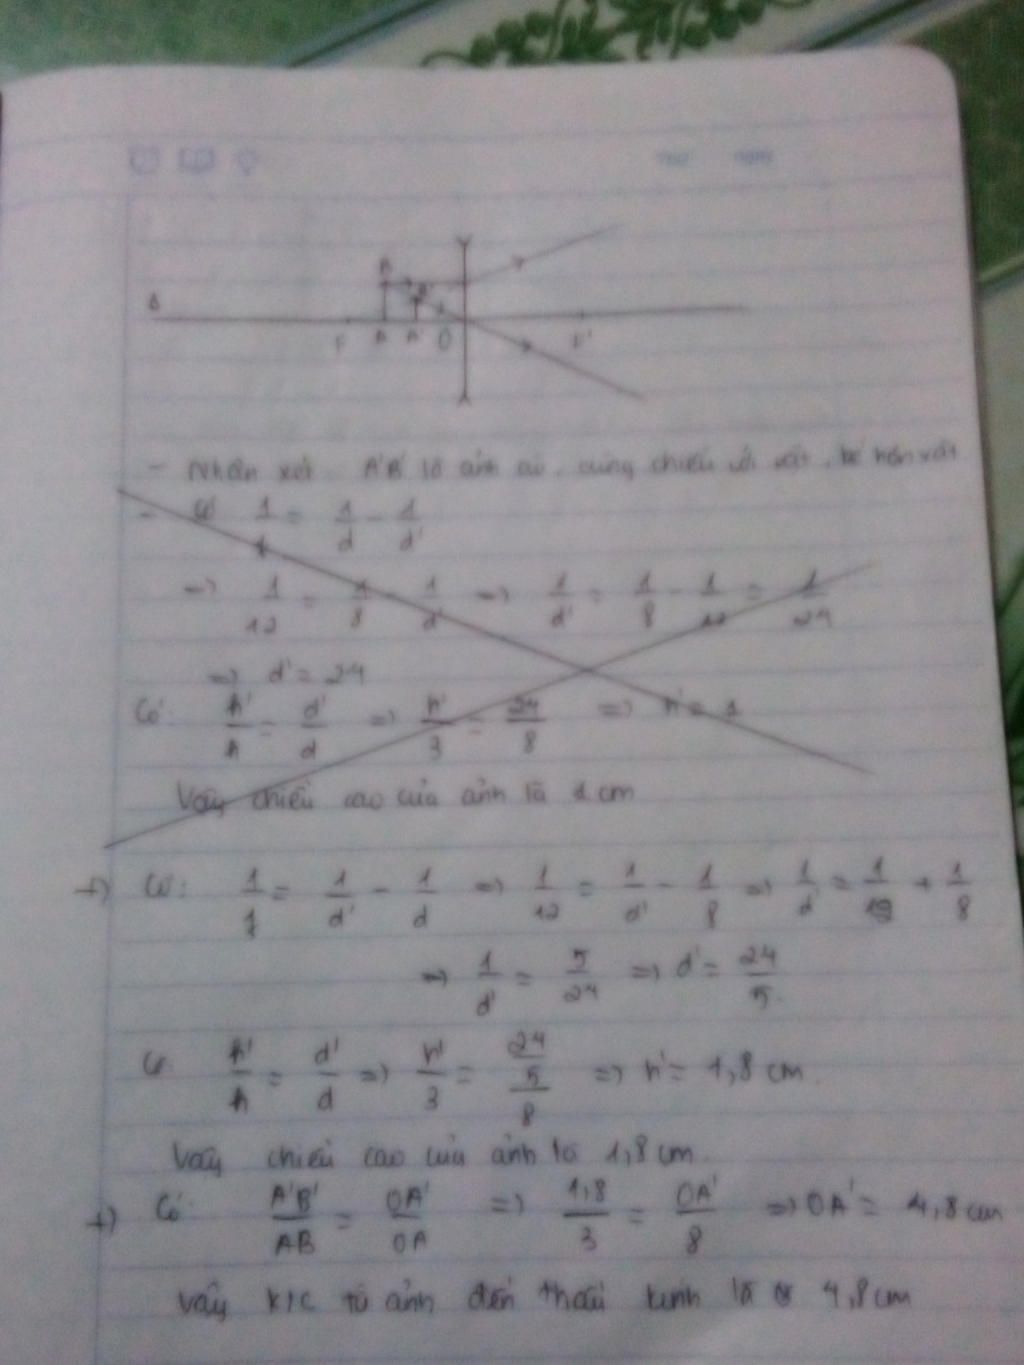 Δ
B
B'
F A A' O F'
- Nhận xét A'B' là ảnh ảo, cùng chiều với vật, bé hơn vật
- Có 1/f = 1/d - 1/d'
=> 1/12 = 1/8 - 1/d' => 1/d' = 1/8 - 1/12 = 1/24
=> d' = 24
Có: h'/h = d'/d => h'/3 = 24/8 => h' = 1
Vậy chiều cao của ảnh là 1 cm
+) Có: 1/f = 1/d' - 1/d => 1/12 = 1/d' - 1/8 => 1/d' = 1/12 + 1/8
=> 1/d' = 5/24 => d' = 24/5
Có h'/h = d'/d => h'/3 = 24/5/8 => h' = 1,8 cm.
Vậy chiều cao của ảnh là 1,8 cm.
+) Có: A'B'/AB = OA'/OA => 1,8/3 = OA'/8 => OA' = 4,8 cm
Vậy K/C từ ảnh đến thấu kính là 4,8 cm